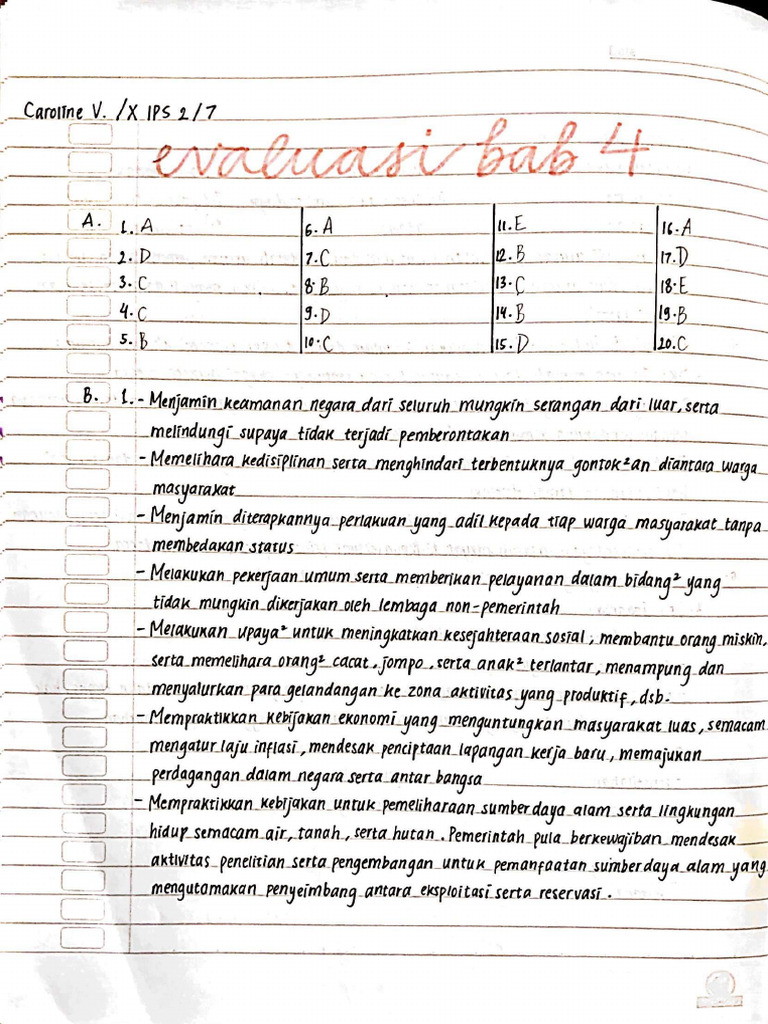 Caroline V. /X IPS 2/7
evaluasi bab 4
A. 1. A 6. A 11. E 16. A
2. D 7. C 12. B 17. D
3. C 8. B 13. C 18. E
4. C 9. D 14. B 19. B
5. B 10. C 15. D 20. C
B. 1. - Menjamin keamanan negara dari seluruh mungkin serangan dari luar, serta
melindungi supaya tidak terjadi pemberontakan
- Memelihara kedisiplinan serta menghindari terbentuknya gontok²an diantara warga
masyarakat
- Menjamin diterapkannya perlakuan yang adil kepada tiap warga masyarakat tanpa
membedakan status
- Melakukan pekerjaan umum serta memberikan pelayanan dalam bidang² yang
tidak mungkin dikerjakan oleh lembaga non-pemerintah
- Melakukan upaya² untuk meningkatkan kesejahteraan sosial, membantu orang miskin,
serta memelihara orang² cacat, jompo, serta anak² terlantar, menampung dan
menyalurkan para gelandangan ke zona aktivitas yang produktif, dsb.
- Mempraktikkan kebijakan ekonomi yang menguntungkan masyarakat luas, semacam
mengatur laju inflasi, mendesak penciptaan lapangan kerja baru, memajukan
perdagangan dalam negara serta antar bangsa
- Mempraktikkan kebijakan untuk pemeliharaan sumber daya alam serta lingkungan
hidup semacam air, tanah, serta hutan. Pemerintah pula berkewajiban mendesak
aktivitas penelitian serta pengembangan untuk pemanfaatan sumber daya alam yang
mengutamakan penyeimbang antara eksploitasi serta reservasi.